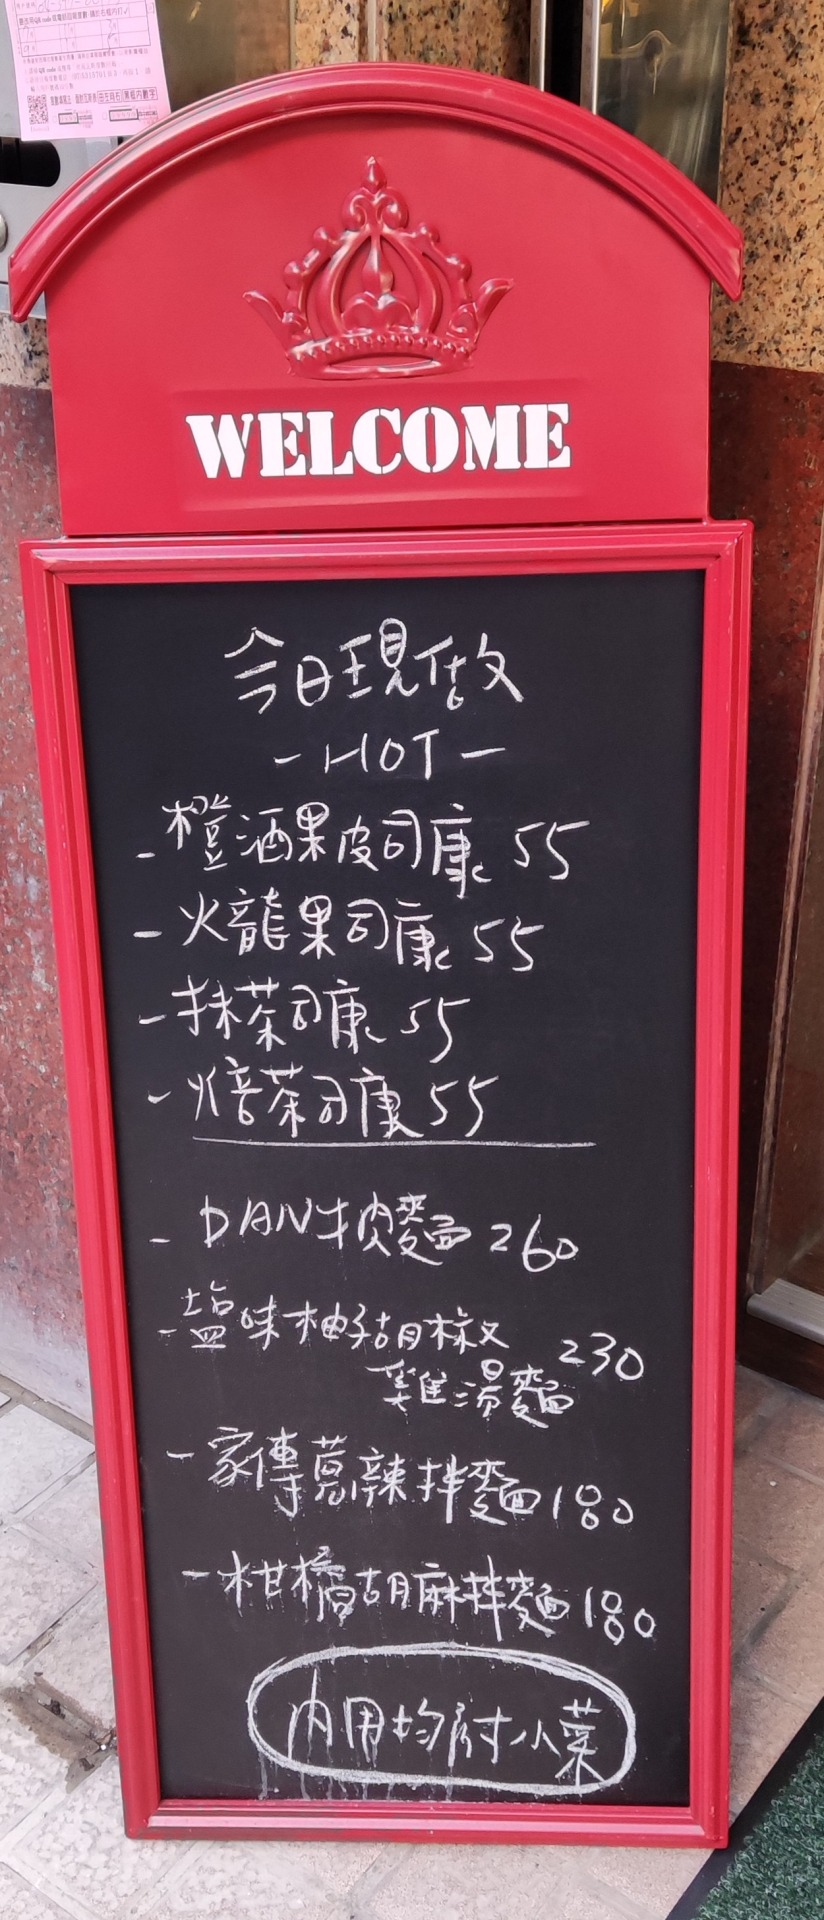 WELCOME
今日現做
-HOT-
-橙酒果皮司康 55
-火龍果司康 55
-抹茶司康 55
-焙茶司康 55
-DAN牛肉麵 260
-塩味柚子胡椒
雞湯麵 230
-家傳蔥辣拌麵 180
-柑橘胡麻拌麵 180
內用均附小菜